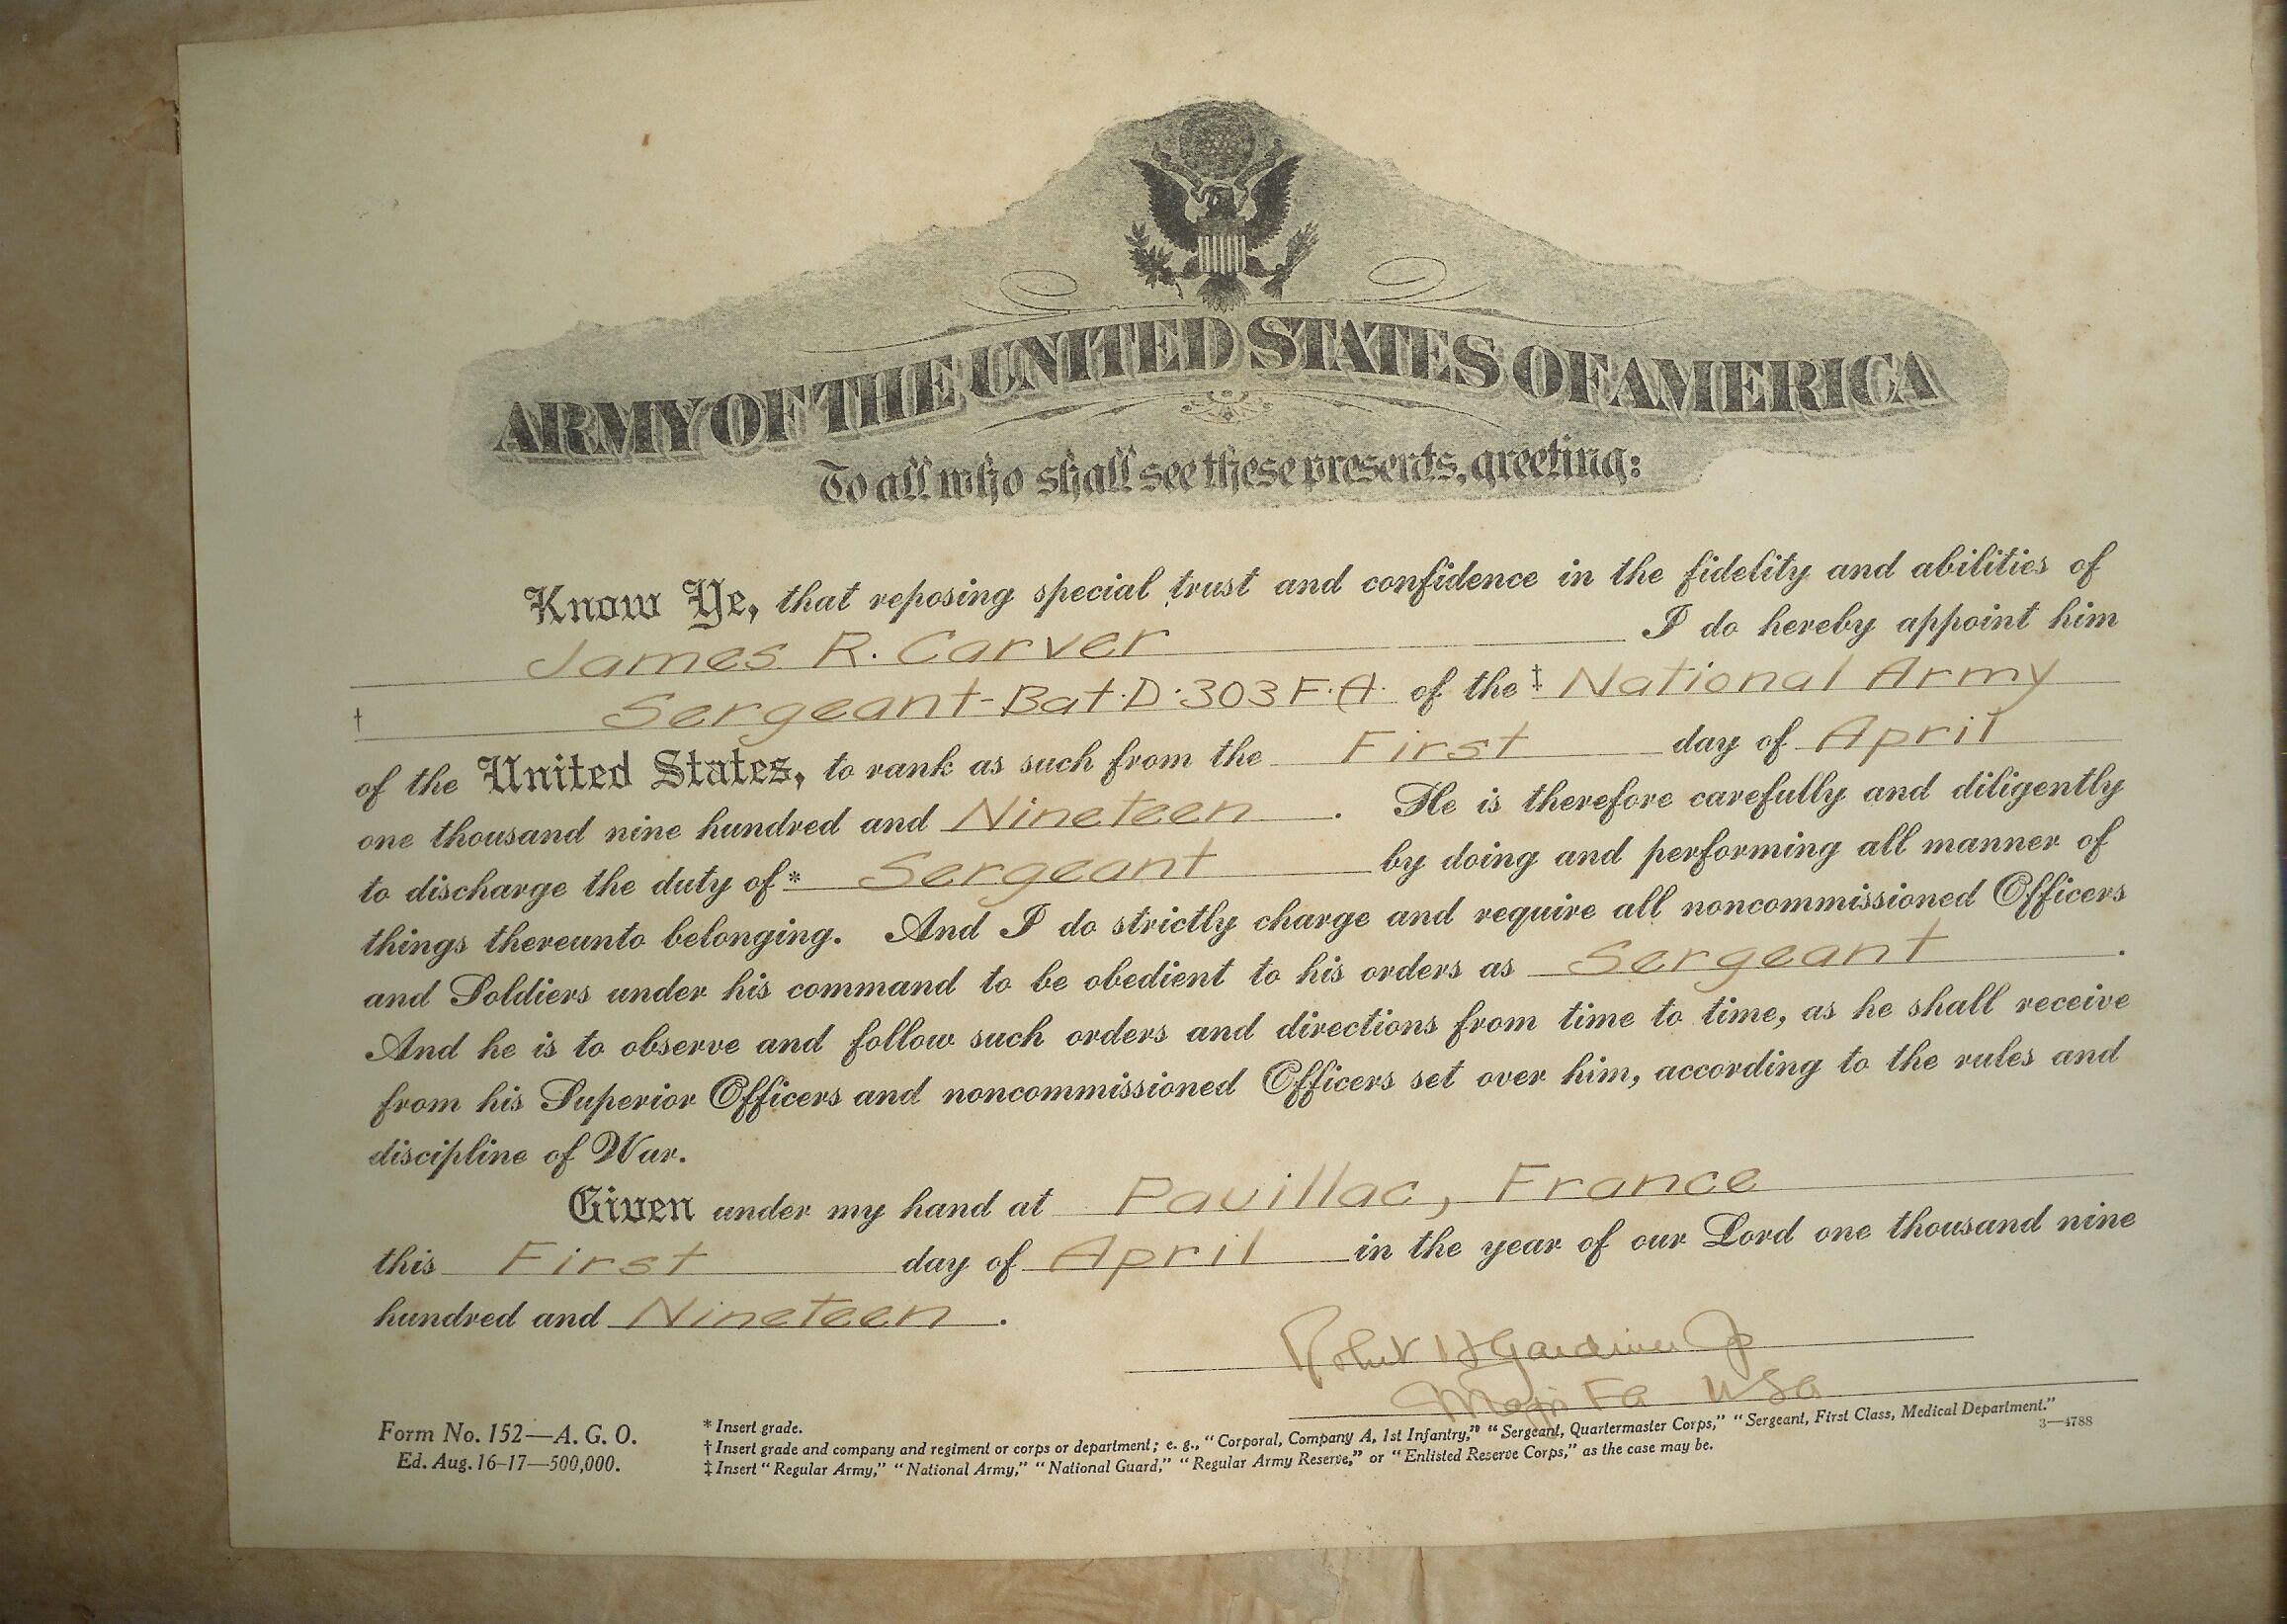 ARMY OF THE UNITED STATES OF AMERICA
To all who shall see these presents, greeting:
Know Ye, that reposing special trust and confidence in the fidelity and abilities of
James R. Carver I do hereby appoint him
† Sergeant-Bat·D·303 F·A· of the ‡ National Army
of the United States, to rank as such from the First day of April
one thousand nine hundred and Nineteen. He is therefore carefully and diligently
to discharge the duty of* Sergeant by doing and performing all manner of
things thereunto belonging. And I do strictly charge and require all noncommissioned Officers
and Soldiers under his command to be obedient to his orders as Sergeant.
And he is to observe and follow such orders and directions from time to time, as he shall receive
from his Superior Officers and noncommissioned Officers set over him, according to the rules and
discipline of War.
Given under my hand at Pauillac, France
this First day of April in the year of our Lord one thousand nine
hundred and Nineteen.
Robert H Gardiner Jr
Major FA USA
Form No. 152—A. G. O.
Ed. Aug. 16-17—500,000.
* Insert grade.
† Insert grade and company and regiment or corps or department; e. g., "Corporal, Company A, 1st Infantry," "Sergeant, Quartermaster Corps," "Sergeant, First Class, Medical Department."
‡ Insert "Regular Army," "National Army," "National Guard," "Regular Army Reserve," or "Enlisted Reserve Corps," as the case may be.
3—4788